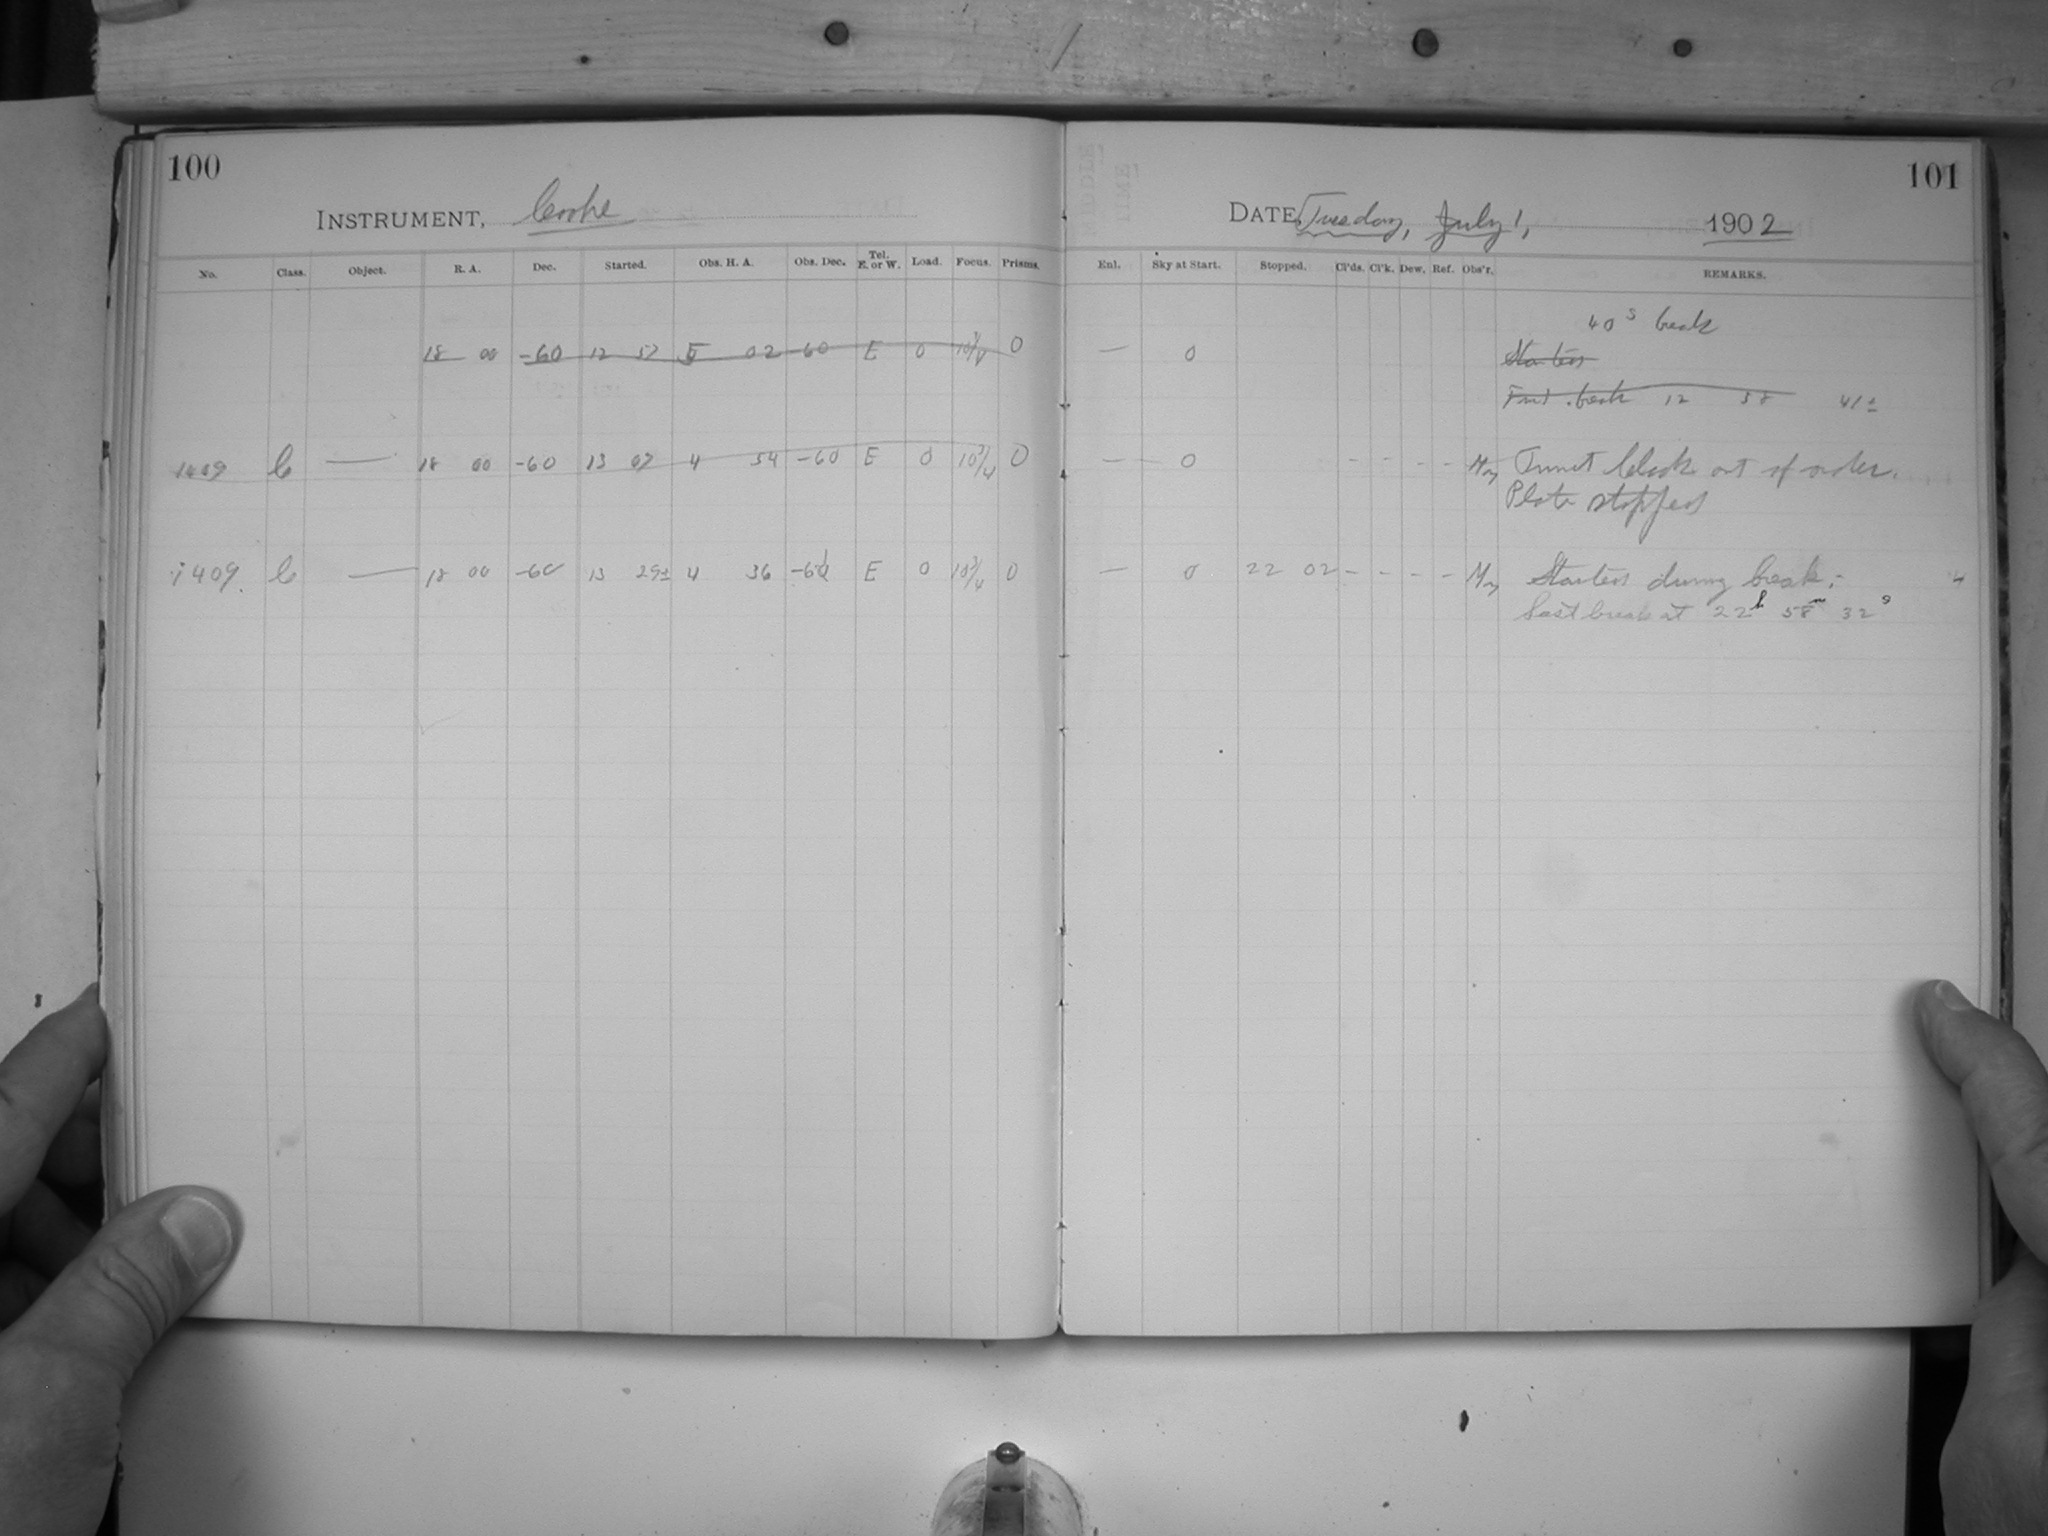 100
INSTRUMENT, Cooke
No. Class. Object. R. A. Dec. Started. Obs. H. A. Obs. Dec. Tel. E. or W. Load. Focus. Prisms.
18 00 -60 12 57 5 02 -60 E 0 10 3/4 0
1409 C — 18 00 -60 13 07 4 54 -60 E 0 10 3/4 0
1409. C — 18 00 -60 13 25± 4 36 -60 E 0 10 3/4 0
101
DATE, Tuesday, July 1, 1902
Enl. Sky at Start. Stopped. Cl'ds. Cl'k. Dew. Ref. Obs'r. REMARKS.
40 s break
— 0 Started
First break 12 58 41±
— 0 - - - - My out of order.
Plate stopped
— 0 22 02 - - - - My Started during break;
Last break at 22 h 58 m 32 s